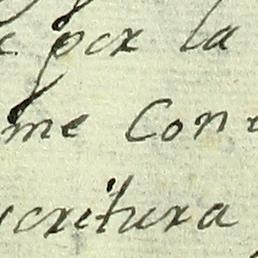 e por la
me Con
scritura